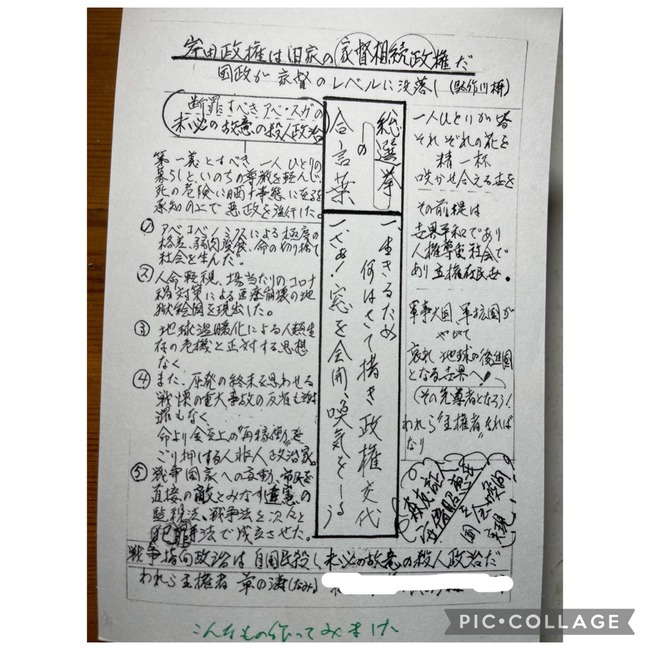 岸田政権は旧家の家督相続政権だ
国政が家督のレベルに没落し
断罪すべきアベ・スガの
未必の故意の殺人政治
第一義とすべき一人ひとりの
暮らしといのちの尊厳を軽んじ
死の危険に晒す事態に至るを
承知の上で悪政を強行した。
① アベコベノミクスによる極度の
格差、弱肉強食、命の切り捨て
社会を生んだ。
② 人命軽視、場当たりのコロナ
禍対策による医療崩壊の地
獄絵図を現出した。
③ 地球温暖化による人類生
存の危機と正対する思想
なく
④ また、原発の終末を思わせる
戦慄の重大事故の反省も謝
罪もなく
命より金、立上の"再稼働"を
ごり押しする人非人政治家。
⑤ 戦争国家への妄動、市民を
直接の敵とみなす違憲の
監視法、戦争法を次々と
犯罪手法で成立させた。
総選挙
の
合言葉
一、生きるため
何はさて措き政権交代
一、さあ!窓を全開、喚気をしよう
一人ひとりが皆
それぞれの花を
精一杯
咲かせ合える世を
その前提は
世界平和であり
人権尊重社会で
あり立憲政民主。
軍事大国 軍拡国が
やがて
哀れ地球の後進国
となる世界へ!
(その先導者となろう!
われら"主権者"なれば
なり
戦争指向政治は自国民殺し未必の故意の殺人政治だ
われら主権者 草の涛(なみ)
こんなもの作ってみました
PIC•COLLAGE